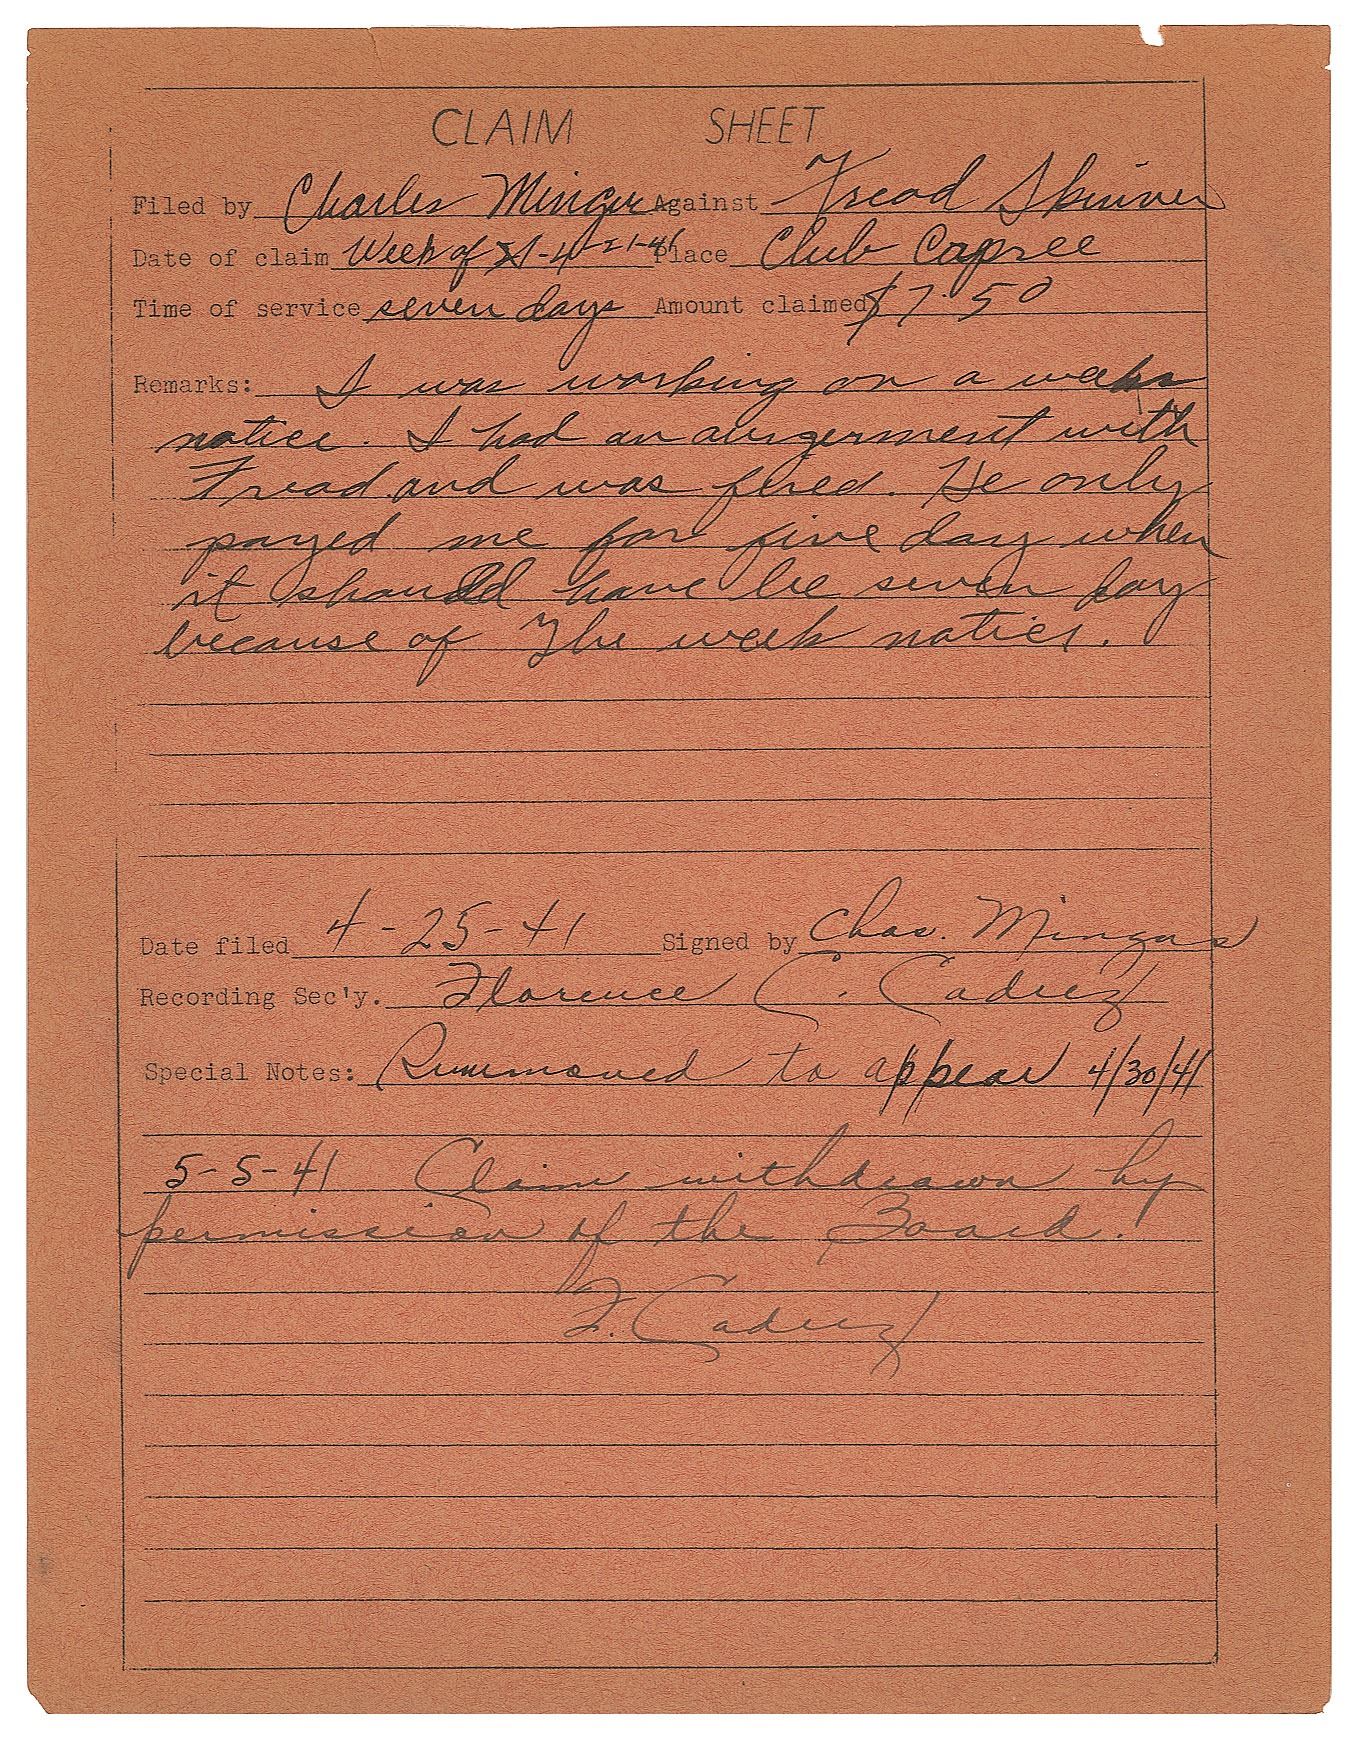 CLAIM SHEET
Filed by Charles Mingus Against Fread Skinner
Date of claim Week of 4-21-41 Place Club Capree
Time of service seven days Amount claimed $7.50
Remarks: I was working on a weeks
notice. I had an aurgerment with
Fread and was fired. He only
payed me for five day when
it should have be seven day
because of The week notice.
Date filed 4-25-41 Signed by Chas. Mingus
Recording Sec'y. Florence C. Cadrez
Special Notes: Summoned to appear 4/30/41
5-5-41 Claim withdrawn by
permission of the Board.
F. Cadrez